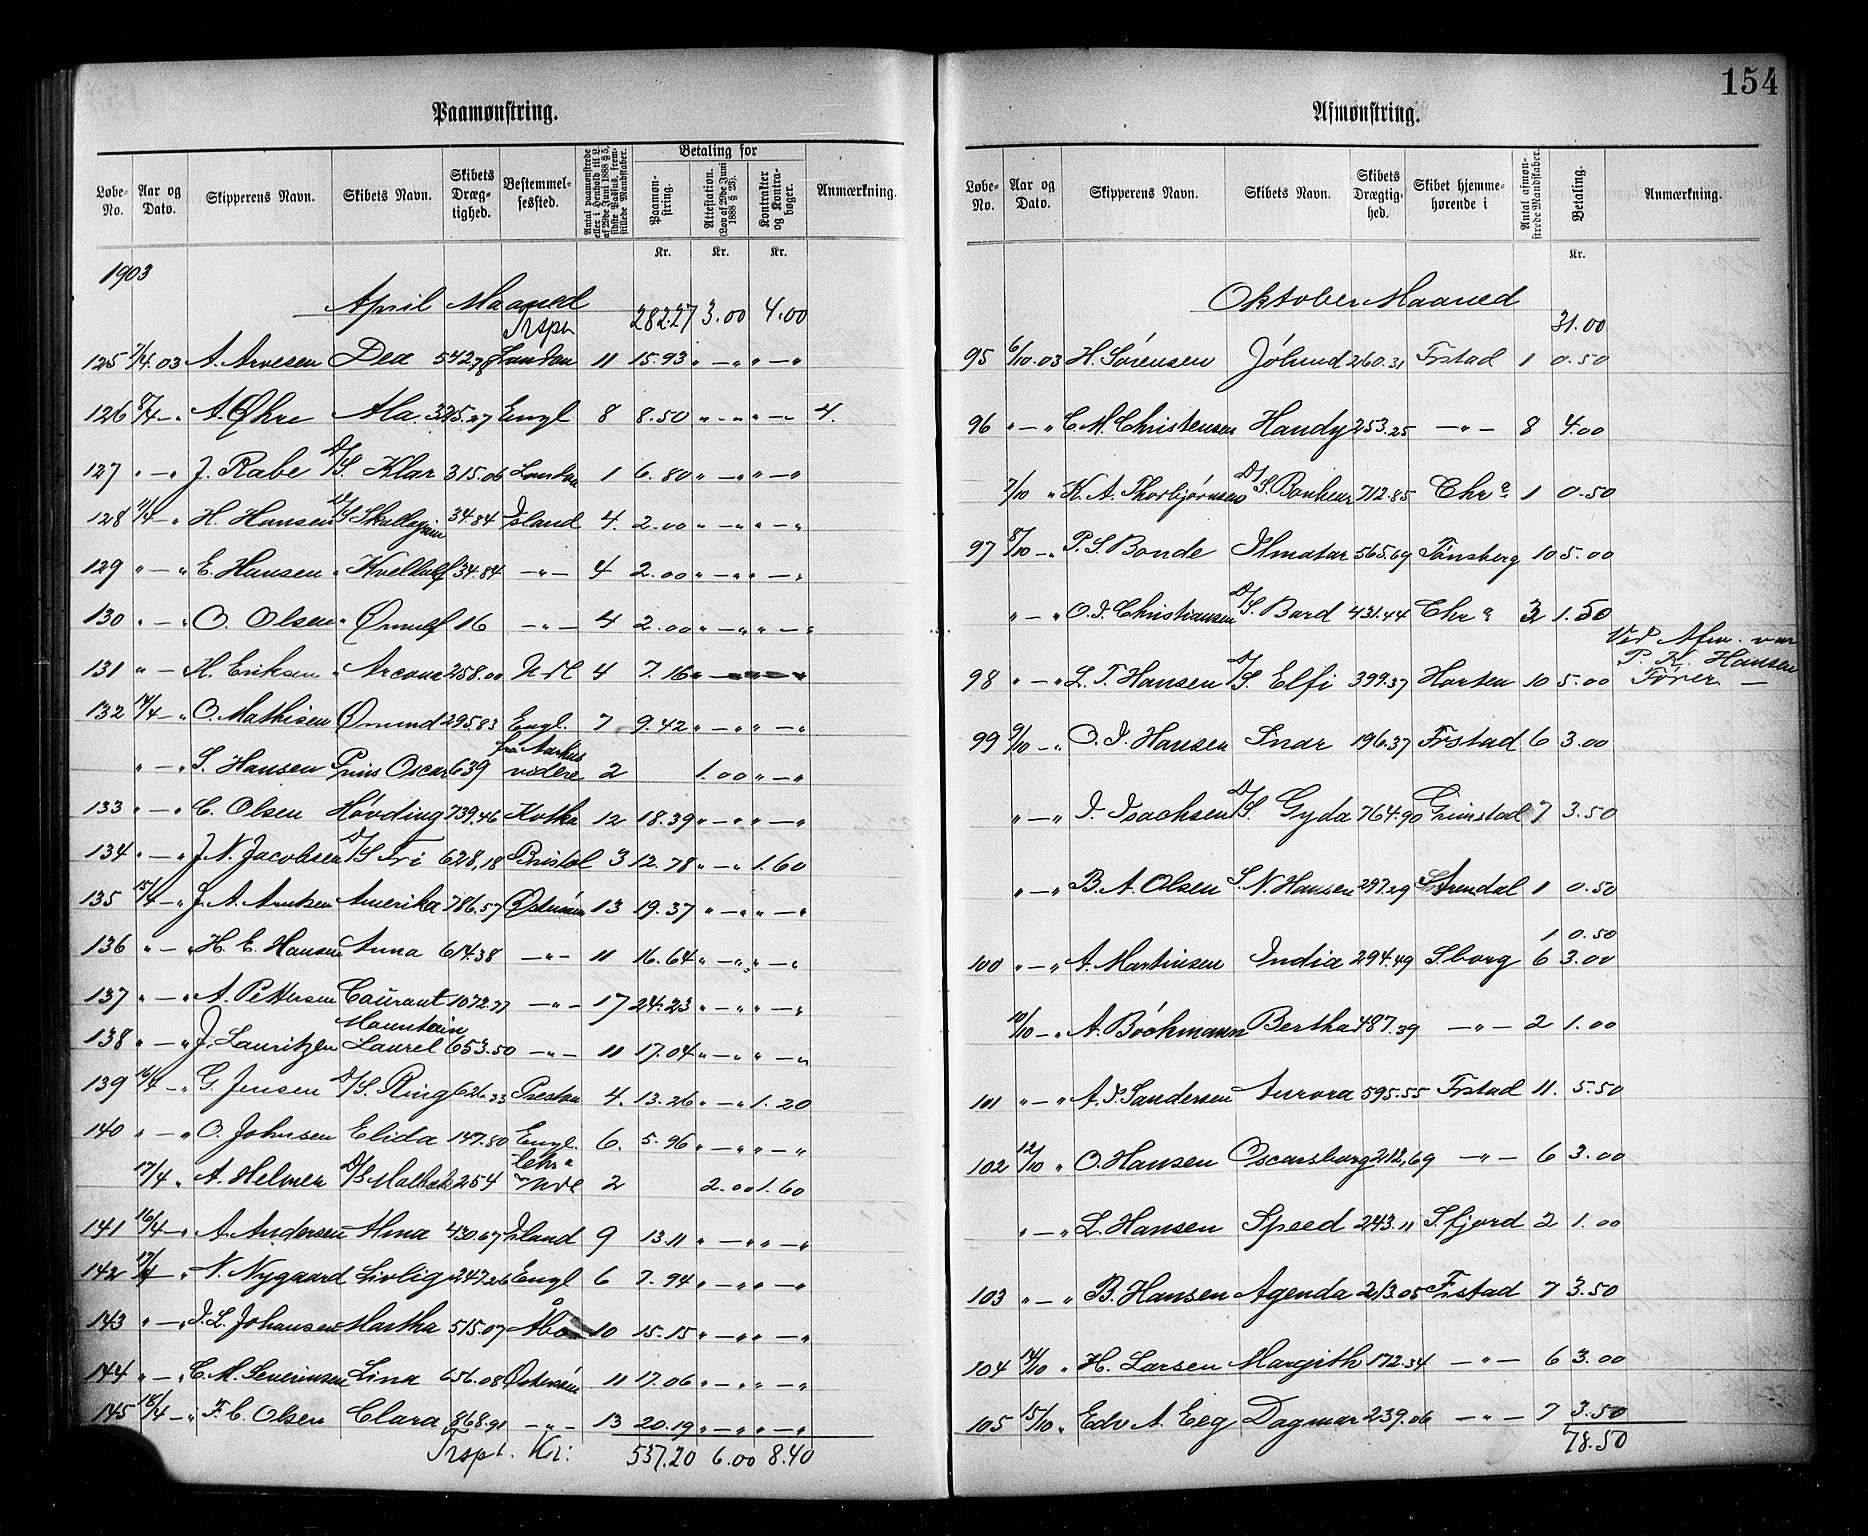 154
Paamønstring.
Løbe-No. Aar og Dato. Skipperens Navn. Skibets Navn. Skibets Dræg-tighed. Bestemmel-sessted. Antal paamønstrede eller i Henhold til L. af 29de Juni 1888 § 5, sidste Passus, frem-stillede Mandskaber. Betaling for Paamøn-string. Attestation. (Lov af 29de Juni 1888 § 26). Kontrakter og Kontra-bøger. Anmærkning.
Kr. Kr. Kr.
1903
April Maaned
Trspr 282.27 3.00 4.00
125 7/4.03 A. Arvesen Dea 542.78 London 11 15.93 " — " " — "
126 8/4 — " A. Øhre Ala 325.27 Engl 8 8.50 " — " " — " 4.
127 " — " J. Rabe D/S. Klar 315.06 London 1 6.80 " — " " — "
128 11/4 — " H. Hansen D/S Skallagrim 34.84 Island 4. 2.00 " — " " — "
129 " — " E. Hansen " Kveldulf 34.84 — " — 4 2.00 " — " " — "
130 " — " O. Olsen " Ørnulf 16 — " — 4 2.00 " — " " — "
131 " — H. Eriksen " Arcona 258.00 Udl 4 7.16 " — " " — "
132 14/4 — " O. Mathisen Ømund 295.83 Engl. 7 9.42 " — " " — "
" — " S. Hansen Prins Oscar 639 fra Aarhus videre 2 1.00 " — "
133 " — " C. Olsen Høvding 739.46 Kotka 12 18.39 " — " " — "
134 " — " J. N. Jacobsen D/S Fri 628,18 Bristol 3 12.78 " — " 1.60
135 15/4 — " J. A. Arntzen Amerika 786.57 Østersøen 13 19.37 " — " " — "
136 " — " H. E. Hansen Anna 614.38 — " — 11 16.64 " — " " — "
137 " — " A. Pettersen Courant 1072.77 — " — 17 24.23 " — " " — "
138 " — " J. Lauritzen Mountain Laurel 653.50 — " — 11 17.04 " — " " — "
139 16/4 — " G. Jensen D/S. Ring 626.33 Preston 4. 13.26 " — " 1.20
140 " — " O. Johnsen Elida 147.80 Engl. 6. 5.96 " — " " — "
17/4 " A. Helmer D/S Malbak 254 Chra Udl 2 2.00 1.60
141 16/4 — " A. Andersen Alma 430.67 Island 9 13.11 " — " " — "
142 17/4 — " N. Nygaard Livlig 247.26 Engl 6 7.94 " — " " — "
143 " — " J. L. Johansen Martha 515.07 Åbo 10 15.15 " — " " — "
144 " — " C. M. Severinsen Lina 656.08 Østersøen 11 17.06 " — " " — "
145 18/4 — " F. C. Olsen Clara 868.91 — " — 13 20.19 " — " " — "
Trspt. Kr: 537.20 6.00 8.40
Afmønstring.
Løbe-No. Aar og Dato. Skipperens Navn. Skibets Navn. Skibets Drægtig-hed. Skibet hjemme-hørende i Antal afmøn-strede Mandskaber. Betaling. Anmærkning.
Kr.
Oktober Maaned
31.00
95 6/10.03 H. Sørensen Jølund 260.31 Frstad 1 0.50
96 " — " C. M. Christensen Handy 253.25 — " — 8 4.00
7/10 " K. A. Thorbjørnsen D/S. Bonheur 712.85 Chra 1 0.50
97 8/10 — " P. S. Bonde Ilmatar 565.69 Tønsberg 10 5.00
" — " O. J. Christiansen D/S. Bard 431.44 Chra 3 1.50
Ved Afm. var
P. K. Hansen
98 " — " L. T. Hansen D/S. Elfi 399.37 Horten 10 5.00 Fører —
99 9/10 — " O. J. Hansen Snar 196.37 Frstad 6 3.00
" — " J. Isachsen D/S. Gyda 764.90 Grimstad 7 3.50
" — " B. A. Olsen S. N. Hansen 297.29 Arendal 1 0.50
1 0.50
100 " — " A. Martinsen India 294.49 Sborg 6 3.00
10/10 — " A. Böckmann Bertha 487.39 — " — 2 1.00
101 " — " A. J. Sandersen Aurora 595.55 Frstad 11. 5.50
102 12/10 " O. Hansen Oscarsborg 212,69 — " — 6 3.00
" — " L. Hansen Speed 243.11 S.fjord 2 1.00
103 " — " B. Hansen Agenda 213.05 Frstad 7 3.50
104 14/10 " H. Larsen Margith 172.34 — " — 6 3.00
105 15/10 " Edv A. Eeg Dagmar 239.06 — " — 7 3.50
78.50